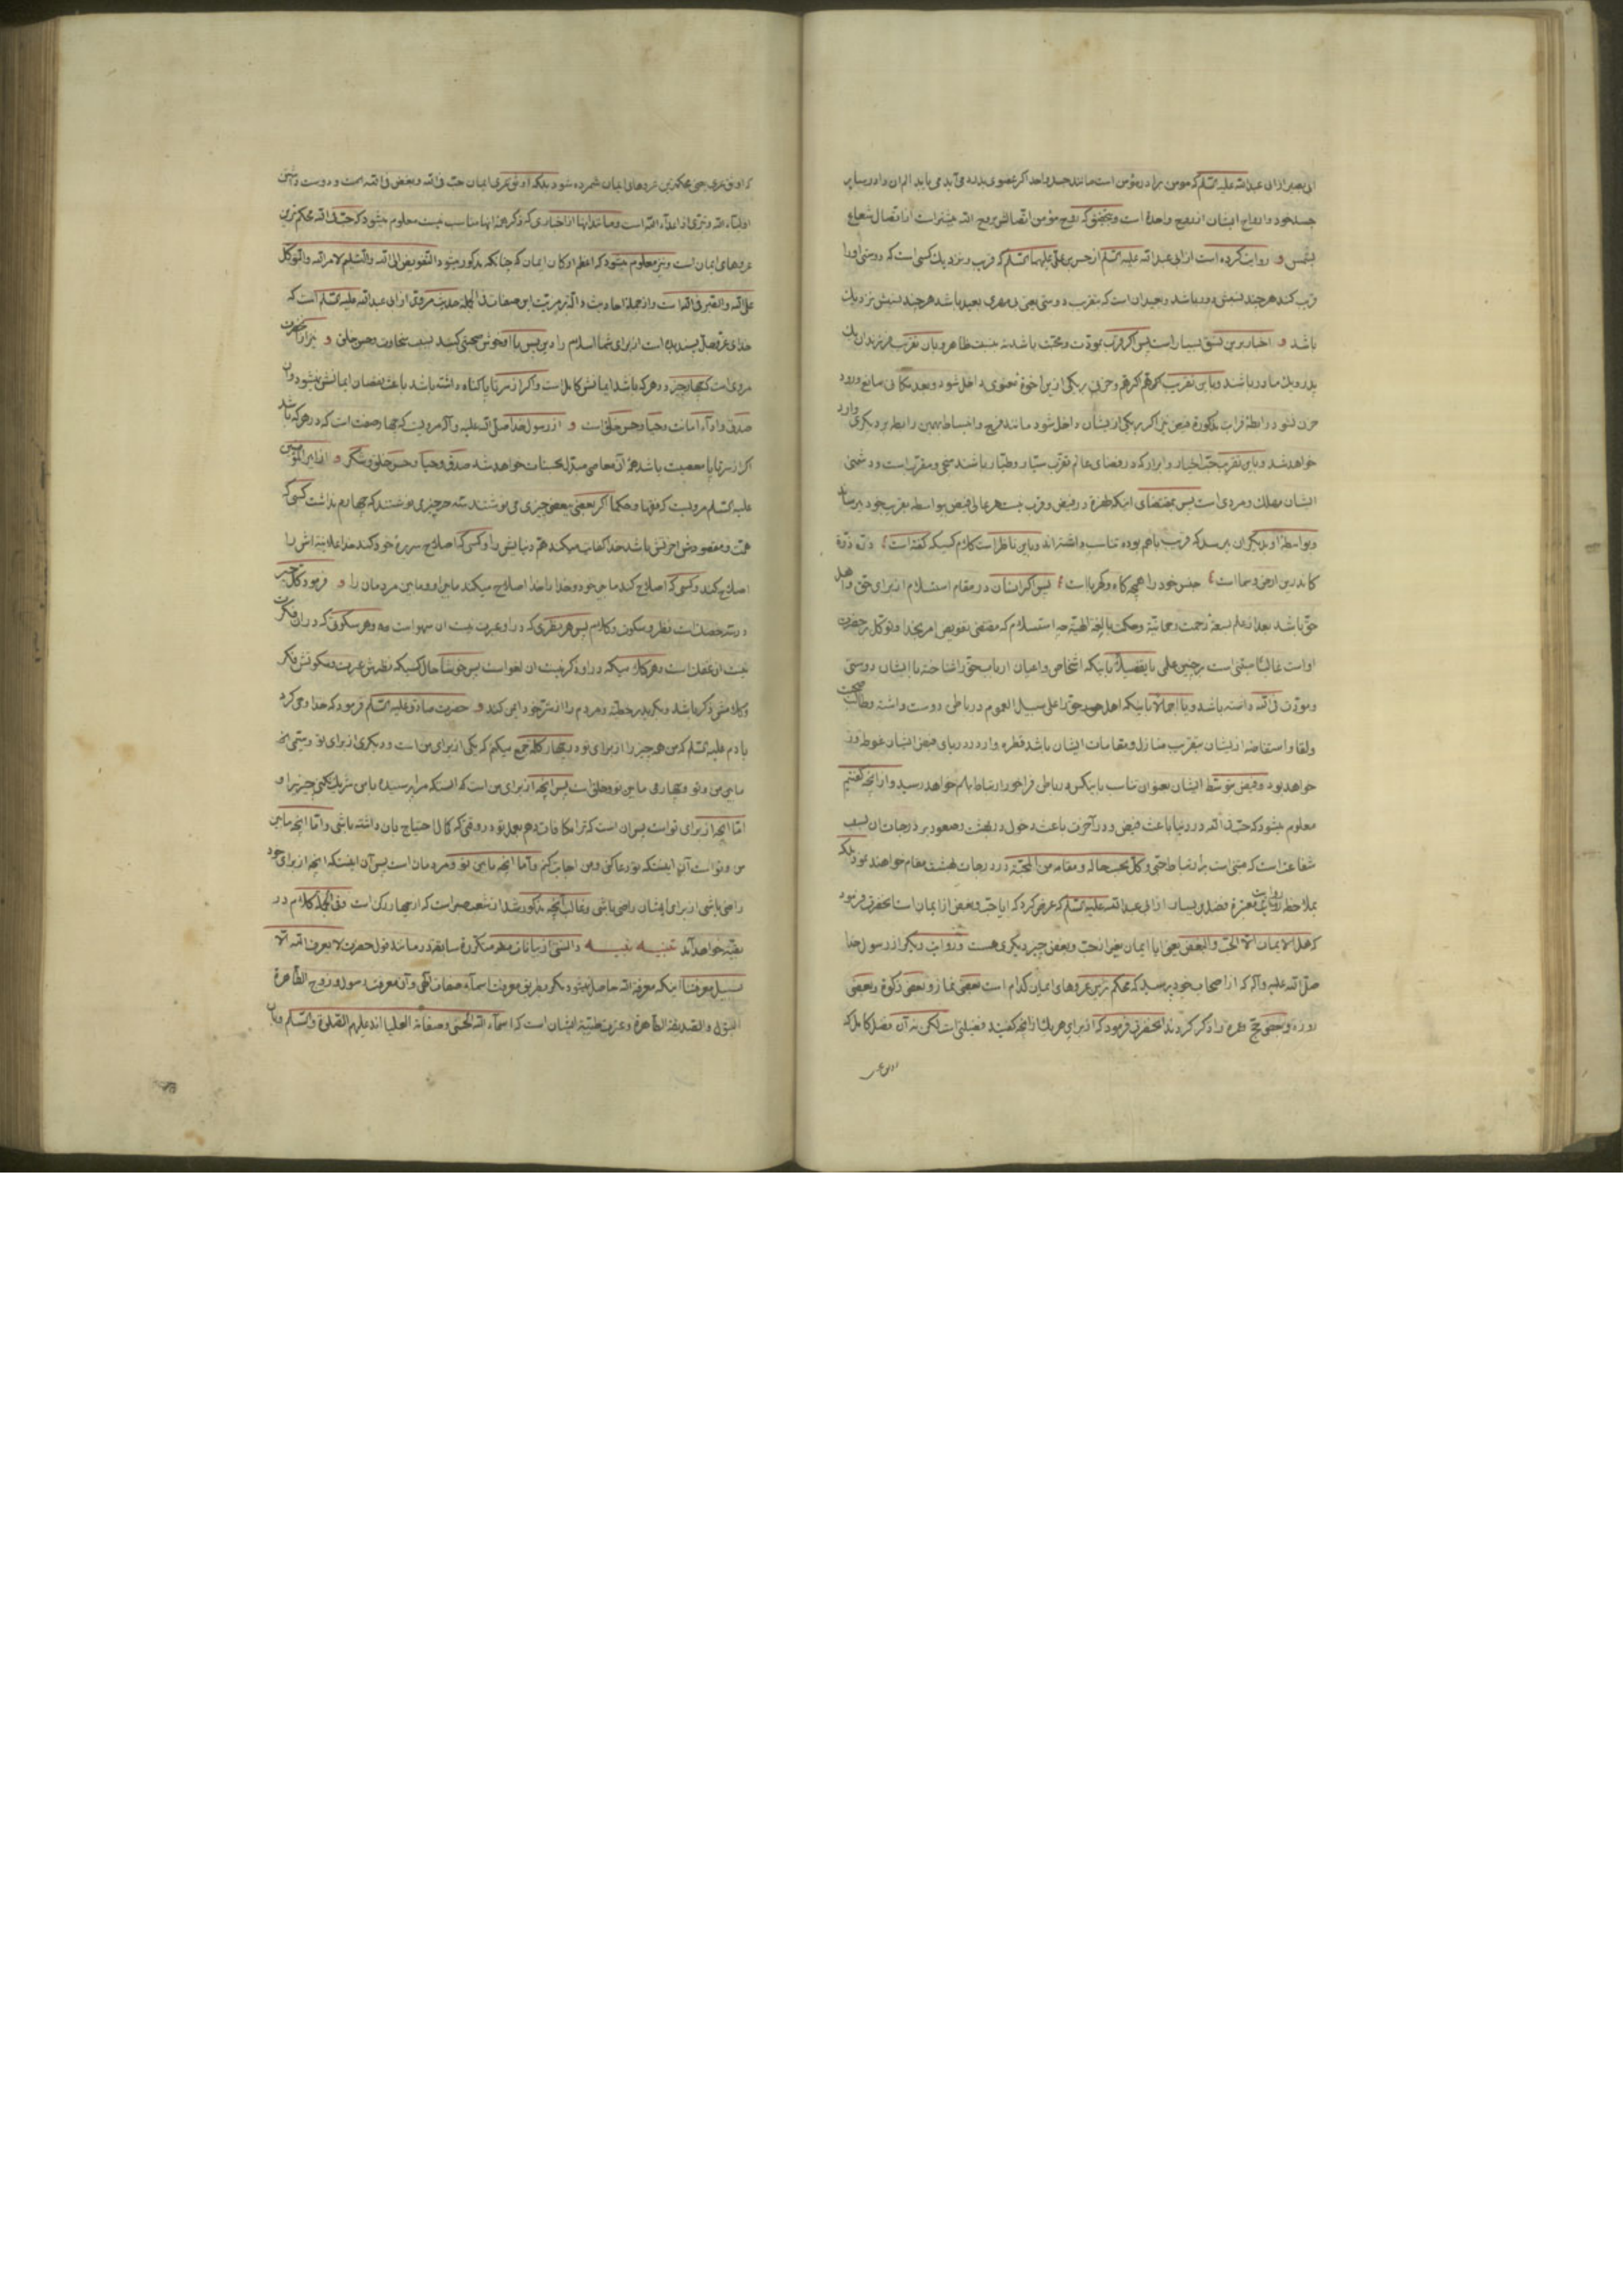 ابی بصیر از ابی عبدالله علیه السلم که مومن برادر مؤمن است مانند جسد واحد اکر عضوی بدرد می آید می یابد الم ان را در سایر
جسد خود و ارواح ایشان از روح واحدة است و بتحقیق که روح مؤمن اتصالش بروح الله بیشتر است از اتصال شعاع
بشمس و روایت کرده است از ابی عبدالله علیه السلم از حسن بن علی علیهما السلم که قریب و نزدیك کسی است که دوستی او را
قریب کند هر چند نسبش دور باشد و بعید ان است که بتقریب دوستی یعنی بی مهری بعید باشد هر چند نسبش نزدیك
باشد و اخبار برین نسق بسیار است پس اکر قرب بمودت و محبت باشد نه بنسبت ظاهر و بان تقریب هر فرزندان یك
پدر و یك مادر باشند و باین تقریب هم و حزن بر یکی ازین اخوة معنوی داخل شود و بعد مکانی مانع ورود
حزن نشود رابطهٔ قرابت مذکورة فیض نیز اکر بر یکی ازیشان داخل شود مانند فرح و انبساط بهمین رابطه بر دیکری وارد
خواهد شد و باین تقریب حب اخیار و ابرار که در فضای عالم تقرب سیار و طیار باشند منجی و مقرب است و دشمنی
ایشان مهلك و مردی است پس بمقتضای اینکه طفرة در فیض و قرب نیست هر عالی فیض بواسطه بقریب خود برساند
و بواسطهٔ او بدیکران برسد که قریب باهم بوده تناسب داشته اند و باین ناظر است کلام کسیکه کفته است ذره ذره
کاندرین ارض و سما است جنس خود را همچه کاه و کهربا است پس اکر انسان در مقام استسلام از برای حق و اهل
حق باشد بعد از علم بسعهٔ رحمت رحمانیة و حکمت بالغه الهیة چه استسلام که مقتضی تفویض امر بخدا و توکل بر حضرت
او است غالباً مبتنی است بر چنین علمی یا تفصیلاً باینکه اشخاص و اعیان ارباب حق را شناخته با ایشان دوستی
و مودت فی الله داشته باشد و یا اجمالاً باینکه اهل حق را علی سبیل العموم در باطن دوست داشته و طالب صحبت
و لقا و استفاضه ازیشان بتقریب منازل و مقامات ایشان باشد قطره وار در دریای فیض ایشان غوطه ور
خواهد بود و فیض بتوسط ایشان بعنوان تناسب باینکس در باطن فراخور ارتباط باهم خواهد رسید و از آنچه کفتیم
معلوم میشود که حب فی الله در دنیا باعث فیض و در آخرت باعث دخول در بهشت و صعود بر درجات ان بسبب
شفاعت است که مبنی است بر ارتباط حبی و کل بحسب حاله و مقامه من المحبة در درجات بهشت مقام خواهند نمود بلکه
بملاحظه روایت معتبرة فضیل بن یسار از ابی عبدالله علیه السلم که عرض کرد که ایا حب و بغض از ایمان است انحضرت فرمود
که هل الایمان الا الحب و البغض یعنی ایا ایمان بغیر از حب و بغض چیز دیکری هست و روایت دیکر از رسول خدا
صلی الله علیه و آله که از اصحاب خود پرسید که محکم ترین عروهای ایمان کدام است بعضی نماز و بعضی زکوة و بعضی
روزه و بعضی حج و عمره را ذکر کردند انحضرت فرمود که از برای هر یك از انچه کفتید فضیلتی است لکن نه آن فضل کامل که
که اوثق عری یعنی محکمترین عروهای ایمان شمرده شود بلکه اوثق عری ایمان حب فی الله و بغض فی الله است و دوست داشتن
اولیاء الله و تبری از اعداء الله است و مانند اینها از اخباری که ذکر همهٔ انها مناسب نیست معلوم میشود که حب فی الله محکم ترین
عروهای ایمان است و نیز معلوم میشود که اعظم ارکان ایمان که چنانکه مذکور میشود التفویض الی الله و التسلیم لامر الله و التوکل
علی الله و الصبر فی الله است و از جمله احادیث داله بر مرتبت این صفات فی الجمله حدیث مروی از ابی عبدالله علیه السلم است که
خدای عز و جل پسندیده است از برای شما اسلام را دین پس با او خوش صحبتی کنید بسبب سخاوت و حسن خلق و نیز از انحضرت
مروی است که چهار چیز در هر که باشد ایمانش کامل است و اکر از سر تا پا کناه داشته باشد باعث نقصان ایمانش نمیشود و آن
صدق و اداء امانت و حیا و حسن خلق است و از رسول خدا صلی الله علیه و آله مرویست که چهار صفت است که در هر که باشد
اکر از سر تا پا معصیت باشد همهٔ آن معاصی مبدل بحسنات خواهد شد صدق و حیا و حسن خلق و شکر و از امیر المؤمنین
علیه السلم مرویست که فقها و حکما اکر بعضی ببعضی چیزی می نوشتند سه چیزی نوشتند که چهارم نداشت کسی که
همت و مقصودش اخرتش باشد خدا کفایت میکند هم دنیایش را و کسی که اصلاح سریرهٔ خود کند خدا علانیه اش را
اصلاح کند و کسی که اصلاح کند ما بین خود و خدا را خدا اصلاح میکند ما بین او و ما بین مردمان را و فرمود کل خیر
در سه خصلت است نظر و سکوت و کلام پس هر نظری که در او عبرت نیست ان سهو است و هر سکوتی که در ان فکرت
نیست ان غفلت است و هر کلامیکه در او ذکر نیست ان لغو است پس خوشا حال کسیکه نظرش عبرت و سکوتش فکر
و کلامش ذکر باشد و بکرید بر خطیئهٔ و مردم را از شر خود ایمن کند و حضرت صادق علیه السلم فرمود که خدا وحی کرد
بادم علیه السلم که من همه چیز را از برای تو در چهار کلمه جمع میکنم که یکی از برای من است و دیکری از برای تو و سیمی انچه
ما بین من و تو و چهارمی ما بین تو و خلق است پس انچه از برای من است که انستکه مرا پرستیده با من شریك نکنی چیزی را و
اما انچه از برای تو است پس ان است که ترا مکافات دهم بعمل تو در وقتی که کمال احتیاج بان داشته باشی و اما انچه ما بین
من و تو است آن اینستکه تو دعا کنی و من اجابت کنم و اما انچه ما بین تو و مردمان است پس آن اینستکه انچه از برای خود
راضی باشی از برای ایشان راضی باشی و غالب آنچه مذکور شد از شعب صبر است که از چهار رکن است و فی الجمله کلام در
بقیه خواهد آمد تنبیه نبیه دانستی از بیانات مکررة سابقه در مانند قول حضرت لا یعرف الله الا
بسبیل معرفتنا اینکه معرفة الله حاصل نمیشود مکر بطریق معرفت اسماء و صفات الهی و آن معرفت رسول و زوج الطاهرة
البتول و الصدیقة الطاهرة و عترت طیبهٔ ایشان است که اسماء الله الحسنی و صفاته العلیا اند علیهم الصلوة و السلم و بان